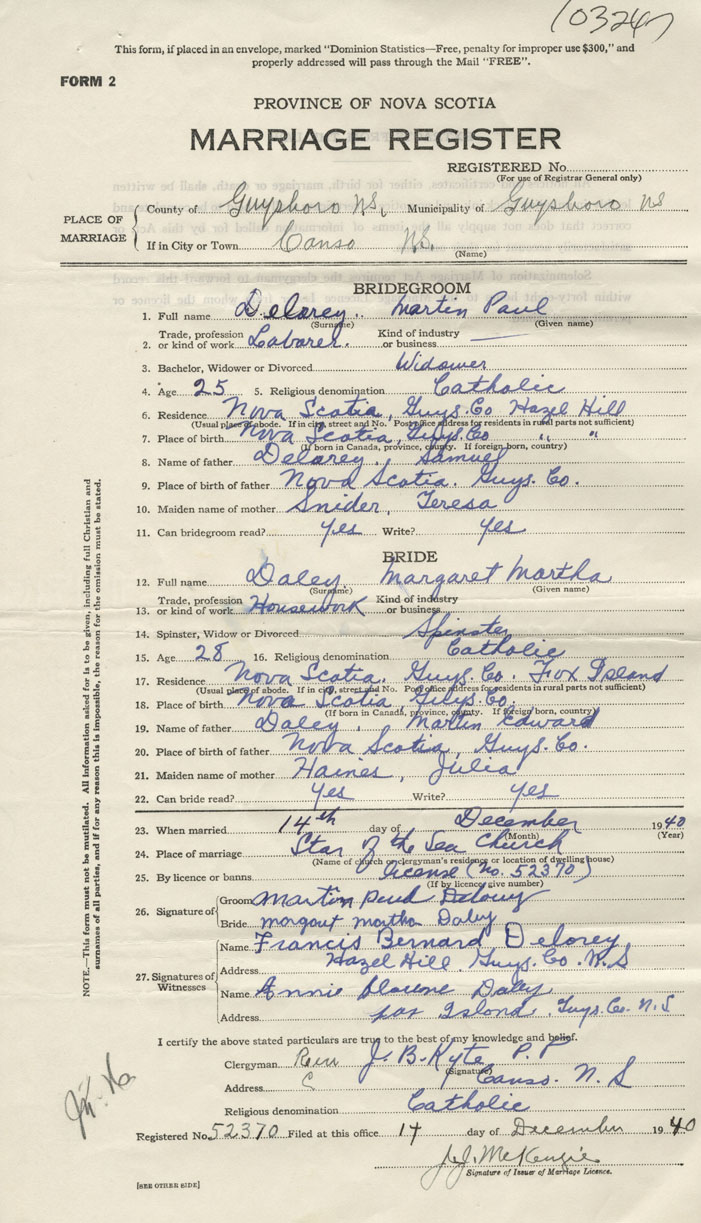 103247
This form, if placed in an envelope, marked "Dominion Statistics—Free, penalty for improper use $300," and
properly addressed will pass through the Mail "FREE".
FORM 2
PROVINCE OF NOVA SCOTIA
MARRIAGE REGISTER
REGISTERED No.
(For use of Registrar General only)
PLACE OF MARRIAGE
County of Guysboro NS, Municipality of Guysboro NS
If in City or Town Canso NS.
(Name)
BRIDEGROOM
1. Full name Delorey.. Martin Paul
(Surname) (Given name)
2. Trade, profession or kind of work Laborer. Kind of industry or business
3. Bachelor, Widower or Divorced Widower
4. Age 25 5. Religious denomination Catholic
6. Residence Nova Scotia, Guys. Co Hazel Hill
(Usual place of abode. If in city, street and No. Post office address for residents in rural parts not sufficient)
7. Place of birth Nova Scotia, Guys. Co " "
(If born in Canada, province, county. If foreign born, country)
8. Name of father Delorey, Samuel
9. Place of birth of father Nova Scotia. Guys. Co.
10. Maiden name of mother Snider, Teresa
11. Can bridegroom read? yes Write? yes
BRIDE
12. Full name Daley, Margaret Martha
(Surname) (Given name)
13. Trade, profession or kind of work Housework Kind of industry or business
14. Spinster, Widow or Divorced Spinster
15. Age 28 16. Religious denomination Catholic
17. Residence Nova Scotia. Guys. Co. Fox Island
(Usual place of abode. If in city, street and No. Post office address for residents in rural parts not sufficient)
18. Place of birth Nova Scotia, Guys. Co.
(If born in Canada, province, county. If foreign born, country)
19. Name of father Daley, Martin Edward
20. Place of birth of father Nova Scotia, Guys. Co.
21. Maiden name of mother Haines, Julia
22. Can bride read? yes Write? yes
23. When married 14th day of December 1940
(Month) (Year)
24. Place of marriage Star of the Sea Church
(Name of church or clergyman's residence or location of dwelling house)
25. By licence or banns license (No. 52370)
(If by licence, give number)
26. Signature of
Groom Martin Paul Delorey
Bride margart martha Daley
27. Signatures of Witnesses
Name Francis Bernard Delorey
Address Hazel Hill Guys. Co. N.S
Name Annie Daley
Address Island, Guys. Co. N.S
I certify the above stated particulars are true to the best of my knowledge and belief.
Clergyman Rev J. B. Kyte P.P
(Signature)
Address Canso. N.S
Religious denomination Catholic
Registered No. 52370 Filed at this office 14 day of December 1940
J.J. McKenzie
Signature of Issuer of Marriage Licence.
[SEE OTHER SIDE]
NOTE.—This form must not be mutilated. All information asked for is to be given, including full Christian and
surnames of all parties, and if for any reason this is impossible, the reason for the omission must be stated.